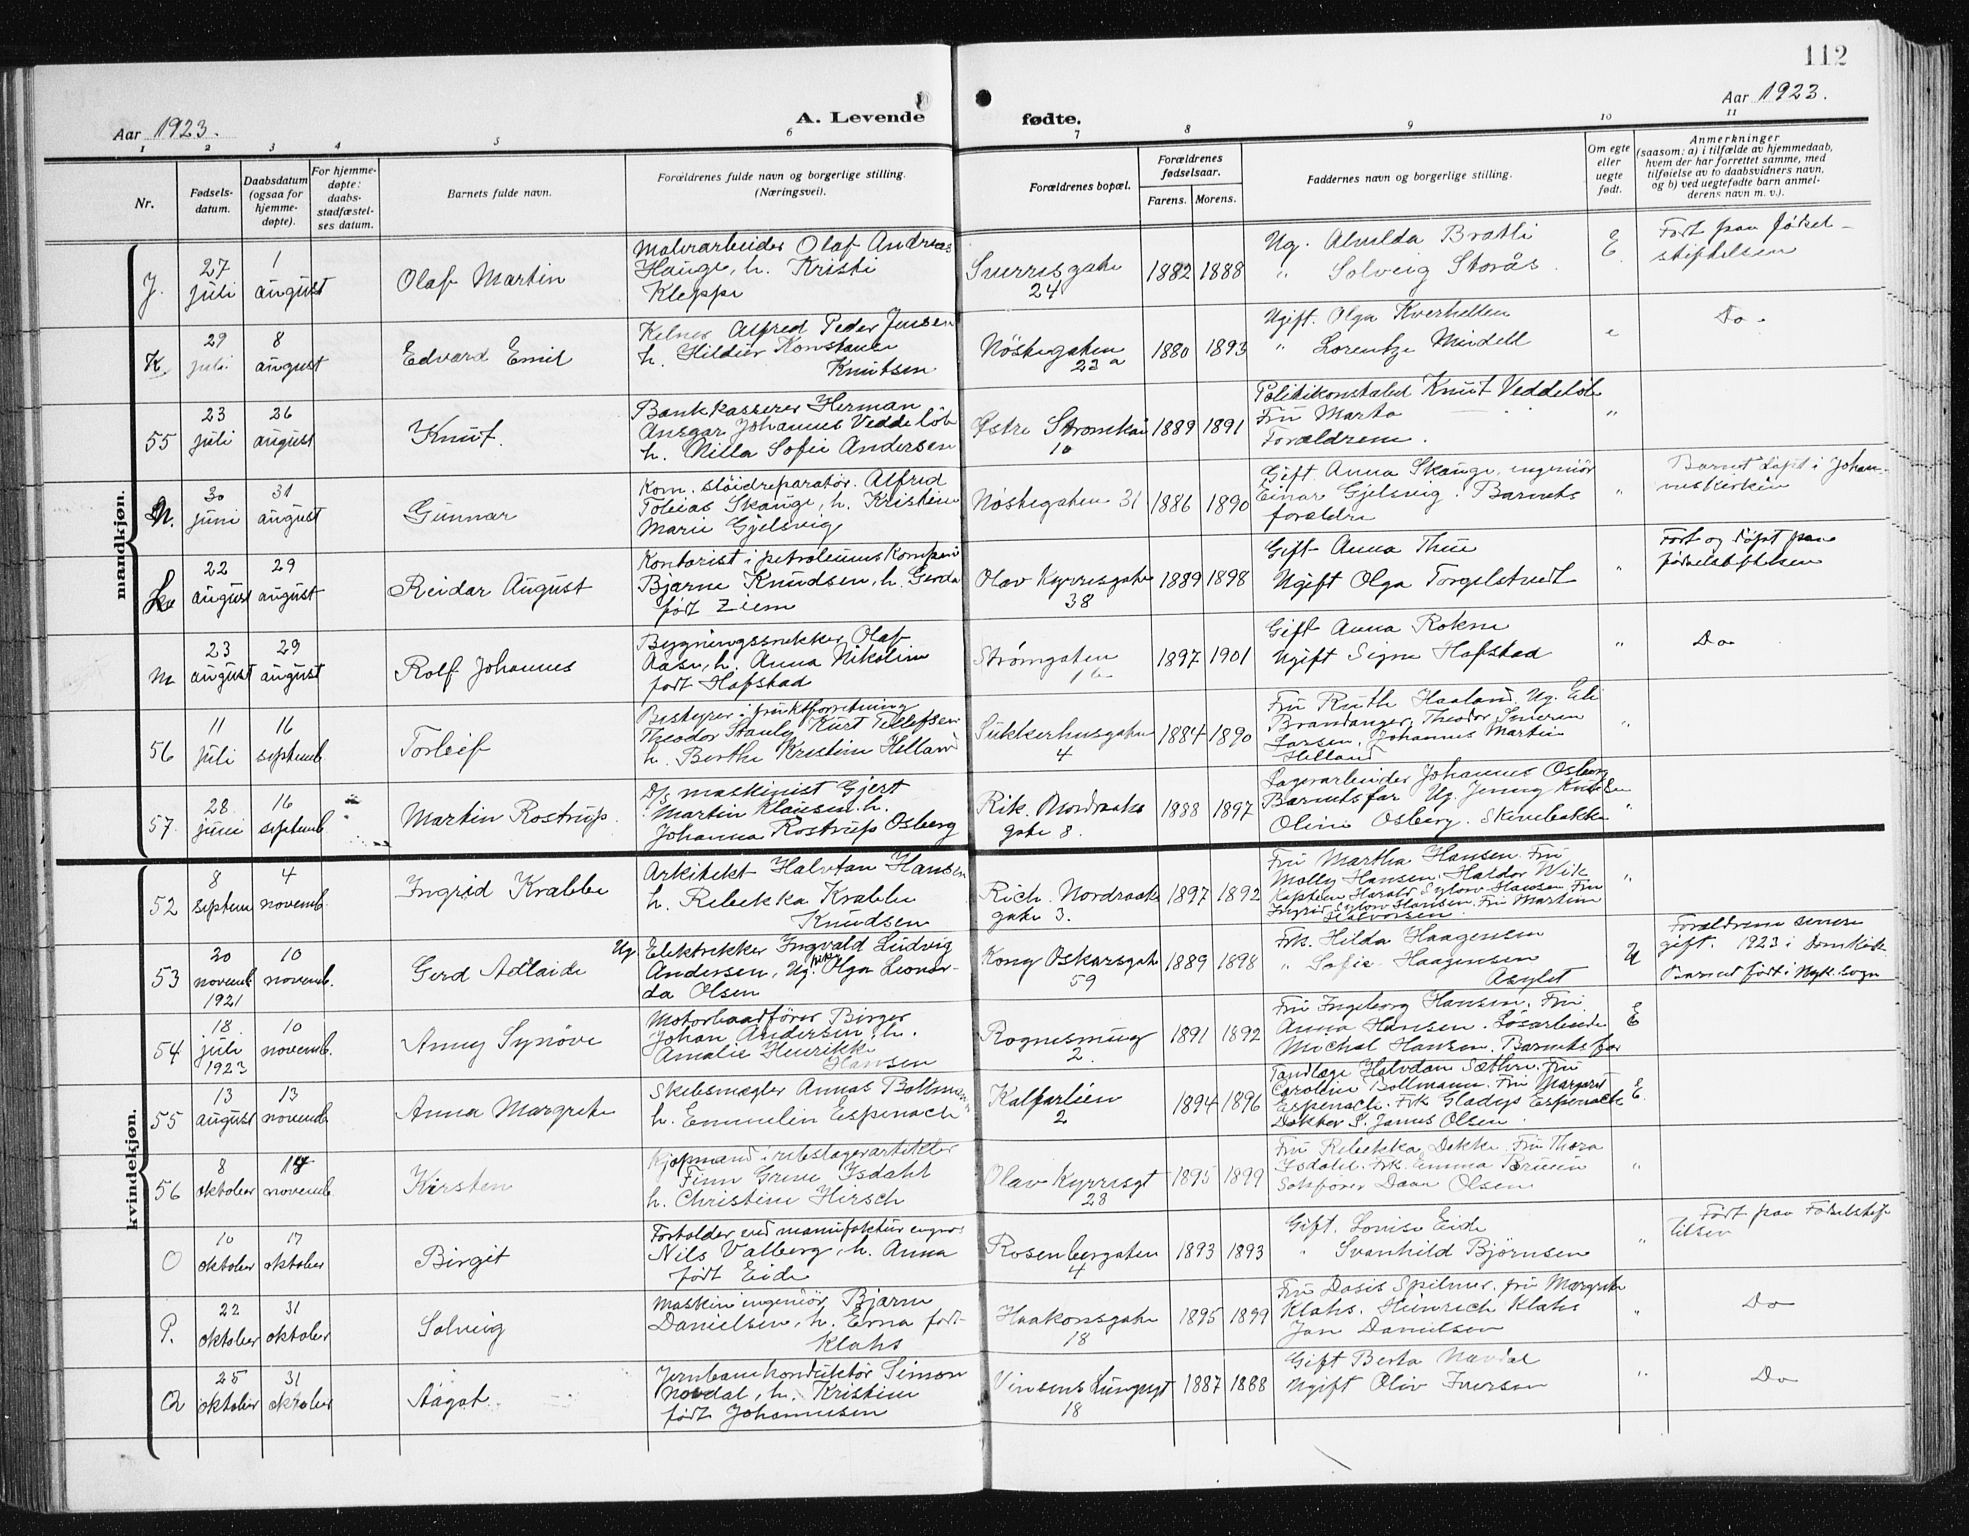 112
Aar 1923.
A. Levende
fødte.
Aar 1923.
1 2 3 4 5 6 7 8 9 10 11
Nr.
Fødsels-
datum.
Daabsdatum
(ogsaa for
hjemme-
døpte).
For hjemme-
døpte:
daabs-
stadfæstel-
ses datum.
Barnets fulde navn.
Forældrenes fulde navn og borgerlige stilling.
(Næringsvei).
Forældrenes bopæl.
Forældrenes
fødselsaar.
Farens. Morens.
Faddernes navn og borgerlige stilling.
Om egte
eller
uegte
født.
Anmerkninger
(saasom: a) i tilfælde av hjemmedaab,
hvem der har forrettet samme, med
tilføielse av to daabsvidners navn,
og b) ved uegtefødte barn anmel-
derens navn m. v.).
mandkjøn.
J. 27 juli 1 august
Olaf Martin
Malerarbeider Olaf Andreas
Hauge, h. Kristi
Kleppe
Snerresgate
24
1882 1888
Ug. Alvilda Bratli
" Solveig Storås
E
Født paa Fødsel-
stiftelsen
K. 29 juli 8 august
Edvard Emil
Kelner Alfred Peder Jensen
h. Hildur Konstance
Knutsen
Nöstegaten
23 a
1880 1893
Ugift. Olga Kverhellen
" Lorentze Meidell
"
Do.
55 23 juli 26 august
Knut.
Bankkasserer Herman
Ansgar Johannes Veddeløb
h. Milla Sofie Andersen
Østre Strømkai
10
1889 1891
Politikonstabel Knut Veddeløb
Fru Marta
Forældrene.
"
30 juni 31 august
Gunnar
Kom. sløidreparatør. Alfred
Tobias Skauge, h. Kristine
Marie Gjelsvig
Nöstegaten 31
1886 1890
Gift. Anna Skauge, ingeniør
Einar Gjelsvig. Barnets
forældre
"
Barnet døpt i Johan-
neskirken
22 august 29 august
Reidar August
Kontorist i petroleumskompani
Bjarne Knudsen, h. Gerda
født Ziem
Olav Kyrresgate
38
1889 1898
Gift Anna Thue
Ugift Olga Torgelstvedt
"
Født og døpt paa
fødselstiftelsen
M 23 august 29 august
Rolf Johannes
Bygningssnekker Olaf
Aase, h. Anna Nikoline
født Hafstad
Strømgaten
16
1897 1901
Gift Anna Rokne
Ugift Signe Hafstad
"
Do
56 11 juli 16 septemb.
Torleif
Bestyrer i fruktforretning
Theodor Stanley Kurt Tellefsen
h. Berthe Kristine Helland
Sukkerhusgaten
4
1884 1890
Fru Ruth Haaland, Ug. Eli
Brandanger, Theodor Iversen
Larsen, Johannes Martin
Helland
"
57. 28 juni 16 septemb.
Martin Rostrup.
D/s maskinist Gjert
Martin Klausen h.
Johanna Rostrup Osberg
Rik. Nordraaks
gate 8.
1888 1897
Lagerarbeider Johannes Osberg
Barnetsfar Ug. Jenny Knutsen
Oline Osberg. Skivebakken
"
kvindekjøn.
52 8 septem 4 novemb.
Ingrid Krabbe
Arkitekt Halvdan Hansen
h. Rebekka Krabbe
Knudsen
Rich. Nordraaks
gate 3.
1897 1892
Fru Martha Hansen. Fru
Molly Hansen, Haldor Wik
Kaptein Harald Sylow Hansen, Fru
Ingrid Sylow Hansen. Fru Martine
Halvorsen
"
53 20 novemb 1921 10 novemb.
Gerd Adlaide
Ug. Elektrikker Ingvald Ludvig
Andersen, Ug. pike Olga Leonar-
da Olsen
Kong Oskarsgate
59
1889 1898
Frk. Hilda Haagensen
" Sofie Haagensen
Asylet
U
Forældrene senere
gift. 1923 i Domkirk.
Barnet født i Nyk. Sogn
54 18. juli 1923 10 novemb.
Anny Synöve
Motorbaadfører Birger
Johan Andersen, h.
Amalie Henrikke
Hansen
Rognesmug
2
1891 1892
Fru Ingeborg Hansen. Fru
Anna Hansen. Løsarbeider
Michal Hansen. Barnets far
E
55 13 august 13 novemb.
Anna Margrete
Skibsmægler Annas Bollmann
h. Emmelin Espenach
Kalfarlien
2
1894 1896
Tandlæge Halvdan Sæthre. Fru
Caroline Bollmann. Fru Margaret
Espenach. Frk Gladys Espenach
Doktor S. James Olsen
E.
56 8 oktober 14 novemb.
Kirsten
Kjøpmand i rebslagerartikler
Finn Greve Isdahl
h. Christine Hirsch
Olav Kyrresgt
28
1895 1899
Fru Rebekka Dekke. Fru Thora
Isdahl. Frk. Emma Bruun
Sakfører Daae Olsen
"
O 10 oktober 17 oktober
Birgit
Forholder ved manufaktur engros
Nils Valberg, h. Anna
født Eide
Rosenbergaten
4
1893 1893
Gift. Lovise Eide
" Svanhild Bjørnsen
"
Født paa Fødselstif
telsen
P. 22 oktober 31 oktober
Solveig
Maskiningeniør Bjarne
Danielsen, h. Erna født
Klahs
Haakonsgate
18
1895 1899
Fru Dosis Spilmer. fru Margrete
Klahs. Heinrich Klahs
Jan Danielsen
"
Do
Q 25 oktober 31 oktober
Aagot
Jernbanekonduktør Simon
Novdal, h. Kristine
født Johannesen
Vinsens Lungesgt
18
1887 1888
Gift Berta Navdal
Ugift Oliv Iversen
"
Do